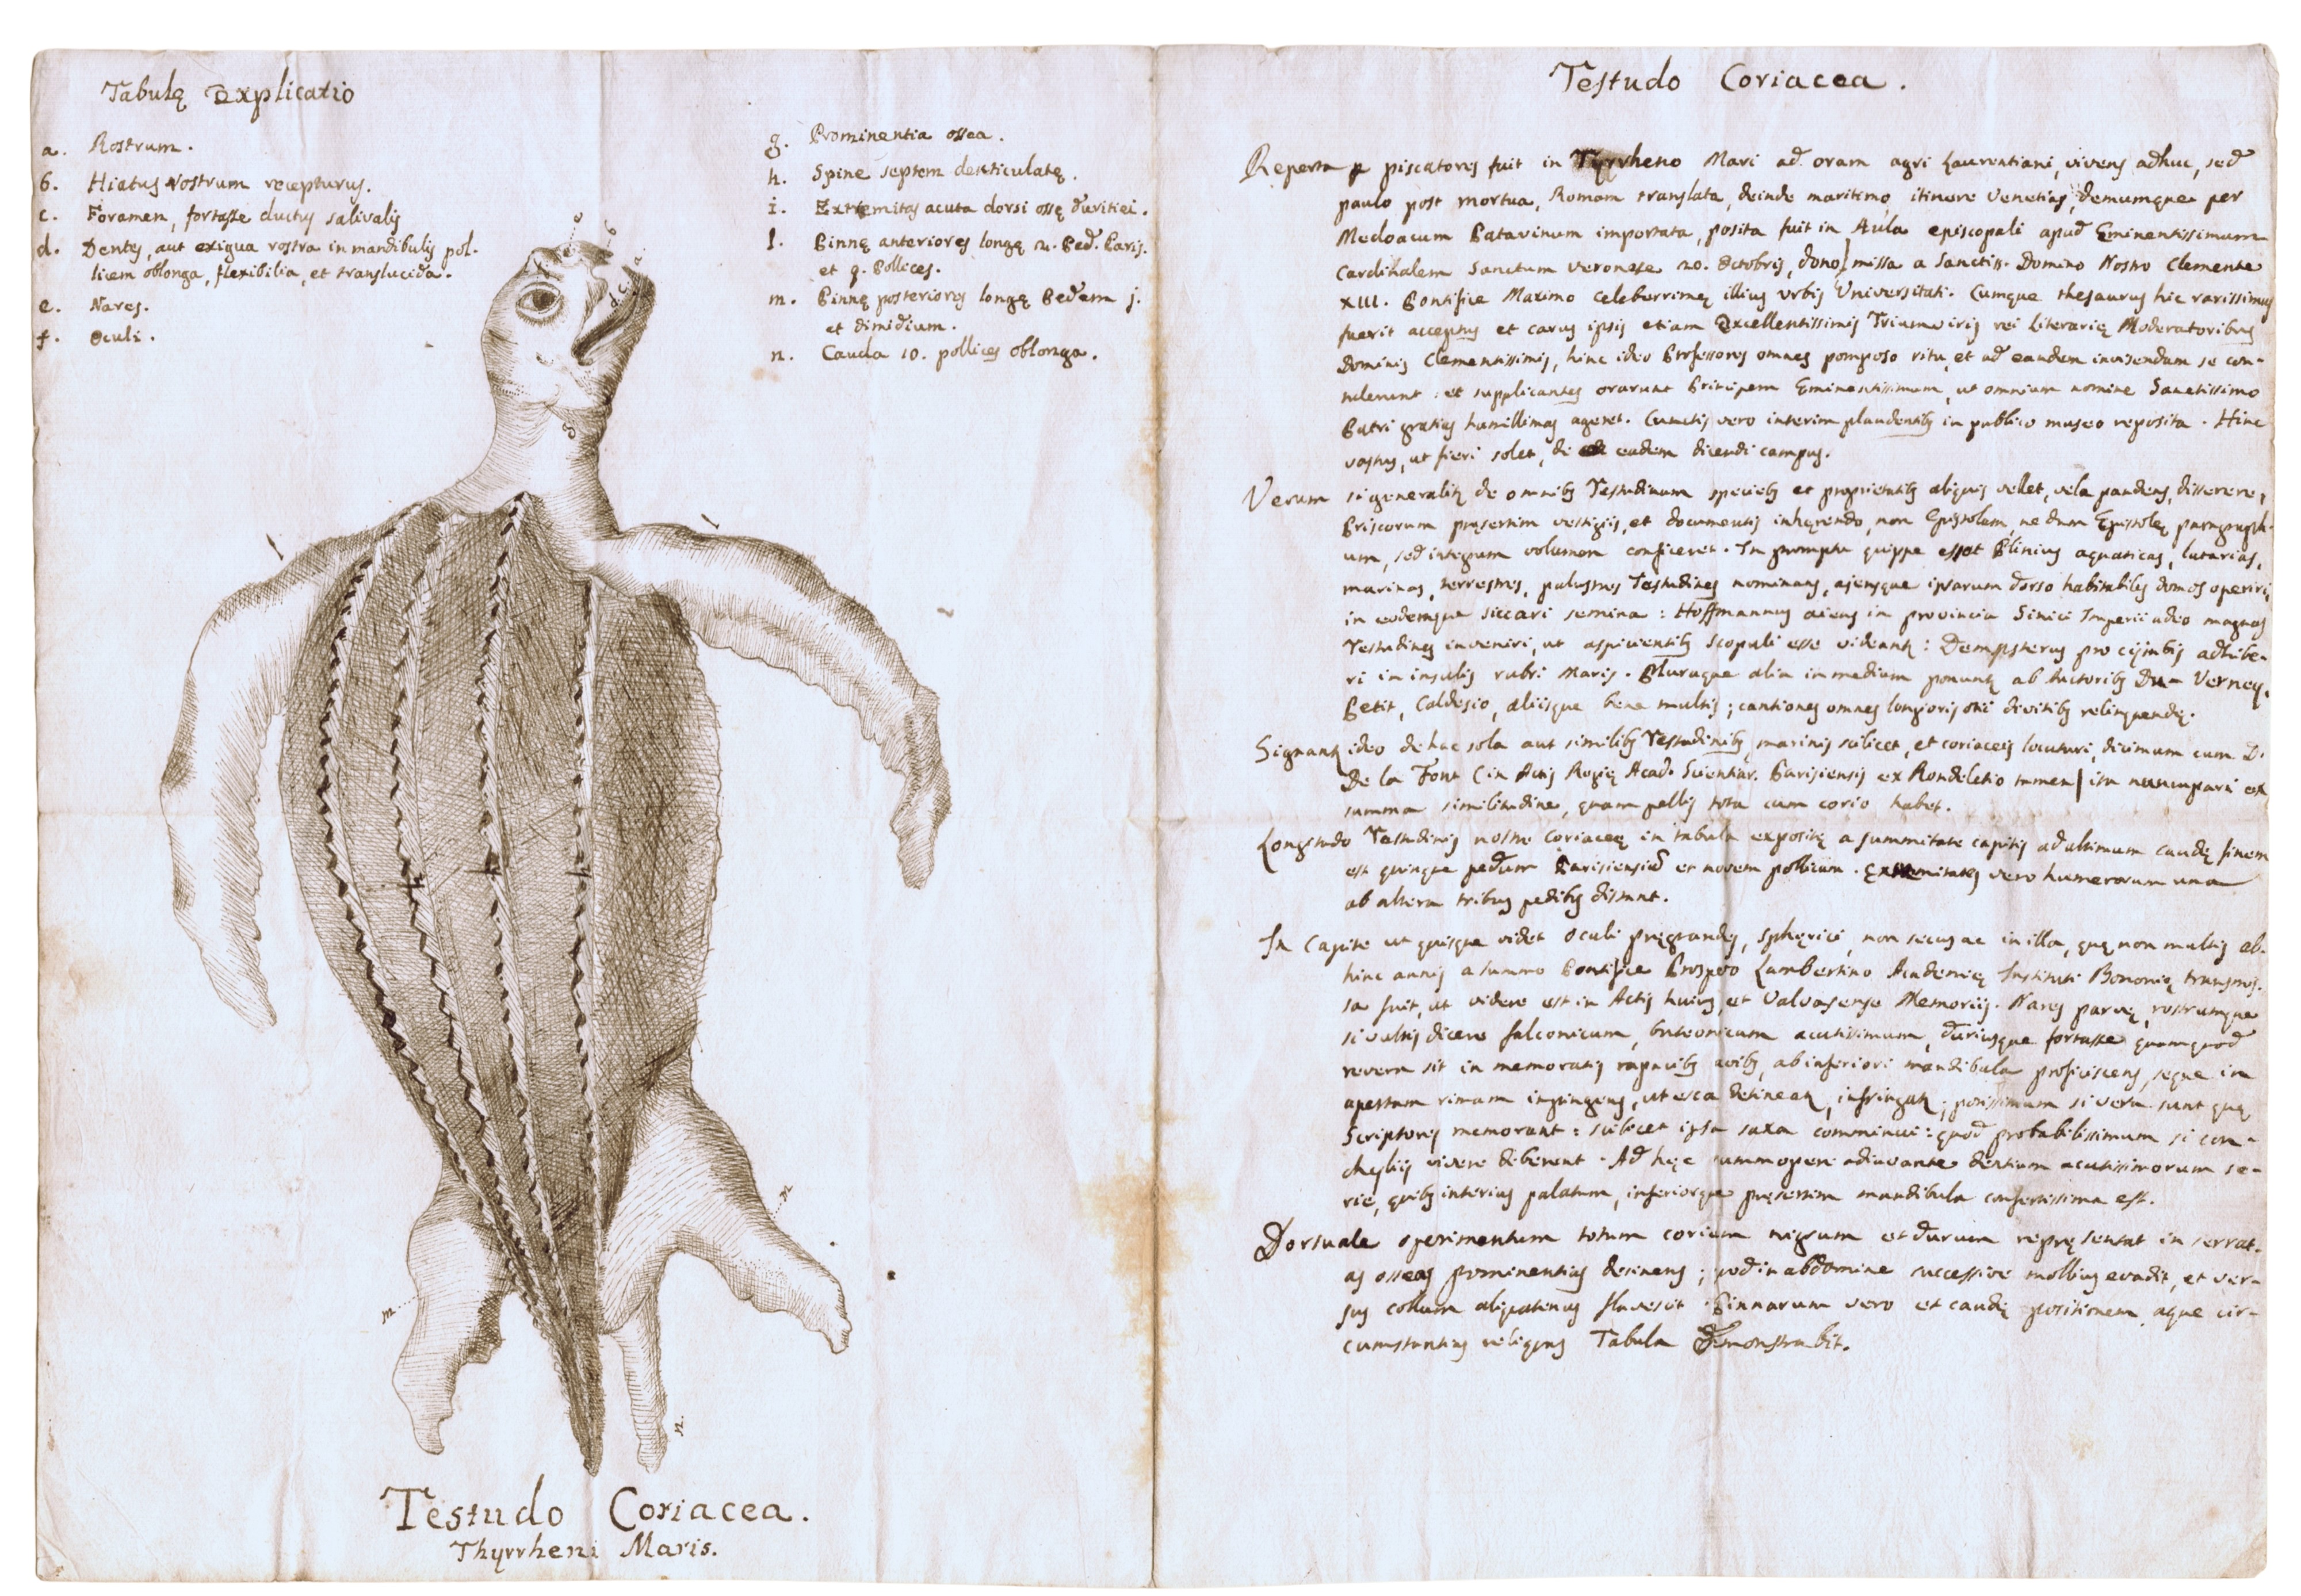 Tabulę Explicatio
a. Rostrum.
b. Hiatus rostrum recepturus.
c. Foramen, fortasse ductus salivalis
d. Dentes, aut exigua rostra in mandibulis pol-
licem oblonga, flexibilia, et translucida.
e. Nares.
f. Oculi.
g. Prominentia ossea.
h. Spinę septem denticulatę.
i. Extremitas acuta dorsi ossę duritiei.
l. Pinnę anteriores longę 2. Ped. Paris.
et 9. Pollices.
m. Pinnę posteriores longę Pedem j.
et dimidium.
n. Cauda 10. pollices oblonga.
Testudo Coriacea.
Thyrrheni Maris.
Testudo Coriacea.
Reperta p piscatores fuit in Tyrrheno Mari ad oram agri Laurentiani, vivens adhuc, sed
paulo post mortua, Romam translata, deinde maritimo itinere Venetias, demumque per
Medoacum Patavinum importata, posita fuit in Aula episcopali apud Eminentissimum
Cardinalem Sanctum Veronese 20. Octobris, dono missa a Sanctiss. Domino Nostro Clemente
XIII. Pontifice Maximo celeberrimę illius Urbis Universitati. Cumque thesaurus hic rarissimus
fuerit acceptus et carus ipsis etiam Excellentissimis Triumviris rei Literarię Moderatoribus
Dominis Clementissimis, hinc ideo Professores omnes pomposo ritu, et ad eandem invisendam se con-
tulerunt: et supplicantes orarunt Principem Eminentissimum, ut omnium nomine Sanctissimo
Patri gratias humillimas ageret. Cunctis vero interim plaudentib in publico museo reposita. Hinc
vastus, ut fieri solet, de eadem dicendi campus.
Verum si generalit de omnib Testudinum specieb et proprietatib aliquis vellet, vela pandens, disserere,
Priscorum pręsertim vestigiis, et documentis inhęrendo, non Epistolam, ne dum Epistolę paragraph-
um, sed integrum volumen conficeret. In promptu quippe esset Plinius aquaticas, lutarias,
marinas, terrestres, palustres Testudines nominans, ajensque ipsarum dorso habitabiles domos operiri,
in eodemque siccari semina: Hoffmannus aiens in provincia Sinici Imperii adeo magnas
Testudines inveniri, ut aspicientib scopuli esse videant: Dempsterus pro cijmbis adhibe-
ri in insulis rubri Maris. Pluraque alia in medium ponunt ab Auctorib Du-Verney,
Petit, Caldesio, aliisque bene multis; cantiones omnes longioris otii divitib relinquendę.
Signant ideo de hac sola aut similib Testudinib, marinis scilicet, et coriaceis locuturi, dicimus cum D.
De la Font (in Actis Regię Acad. Scientiar. Parisiensis ex Rondeletio tamen) ita nuncupari ex
summa similitudine, quam pellis tota cum corio habet.
Longitudo Testudinis nostrę Coriaceę in tabula expositę a summitate capitis ad ultimum caudę finem
est quinque pedum Parisiensium et novem pollicum. Extremitates vero humerorum una
ab altera tribus pedib distant.
In Capite ut quisque videt Oculi pręgrandes, sphęrici, non secus ac in illa, quę non multis ab-
hinc annis a summo Pontifice Prospero Lambertino Academię Instituti Bononię transmis-
sa fuit, ut videre est in Actis huius, et Valvasense Memoriis. Nares parvę, rostrumque
si vultis dicere falconicum, buteonicum acutissimum, duriusque fortasse quam quod
revera sit in memoratis rapacib avib, ab inferiori mandibula proficiscens, seque in
apertam rimam impingens, ut esca detineat, infringat; potissimum si vera sunt quę
Scriptores memorant: scilicet ipsa saxa comminui: quod probabilissimum si con-
chyliis vivere deberent. Ad hęc summopere adiuvante dentium acutissimorum se-
rie, quib interius palatum, inferiorque pręsertim mandibula confertissima est.
Dorsuale operimentum totum corium nigrum et durum repręsentat in serrat-
as osseas prominentias desinens; quod in abdomine successive mollius evadit, et ver-
sus collum aliquatenus flavescit. Pinnarum vero et caudę positionem, aque cir-
cumstantias reliquas Tabula demonstrabit.